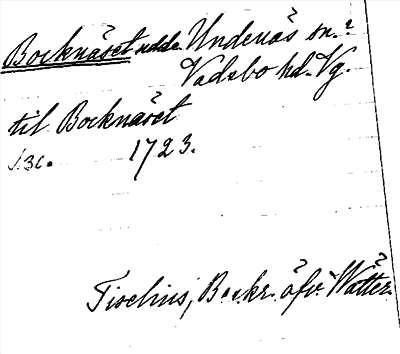 Bocknäset udde Undenäs sn.
Vadsbo hd. Vg.
til Bocknäset
s. 30. 1723.
Tiselius, Beskr. öfv. Wätter.